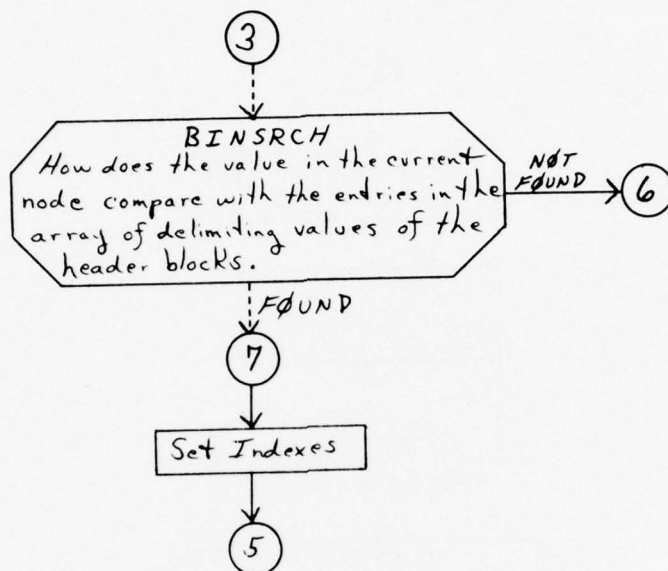 3
BINSRCH
How does the value in the current
node compare with the entries in the
array of delimiting values of the
header blocks.
NØT
FØUND
6
FØUND
7
Set Indexes
5